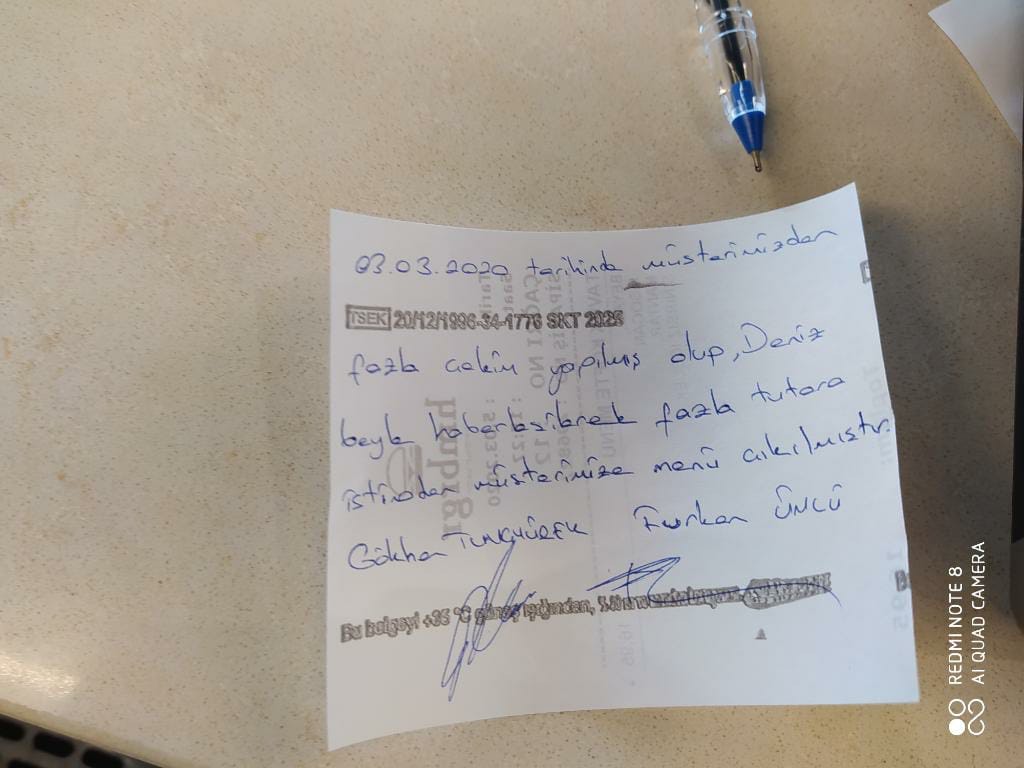 03.03.2020 tarihinde müsterimizden
TSEK 20/12/1996-34-1776 SKT 2025
fazla cekim yapılmış olup, Deniz
beyle haberlesilerek fazla tutara
istinaden müsterimize menü cıkılmıstır.
Gökhan TUNCYÜREK Furkan ÜNCÜ
Bu belgeyi +35 °C güneş ışığından,
REDMI NOTE 8
AI QUAD CAMERA